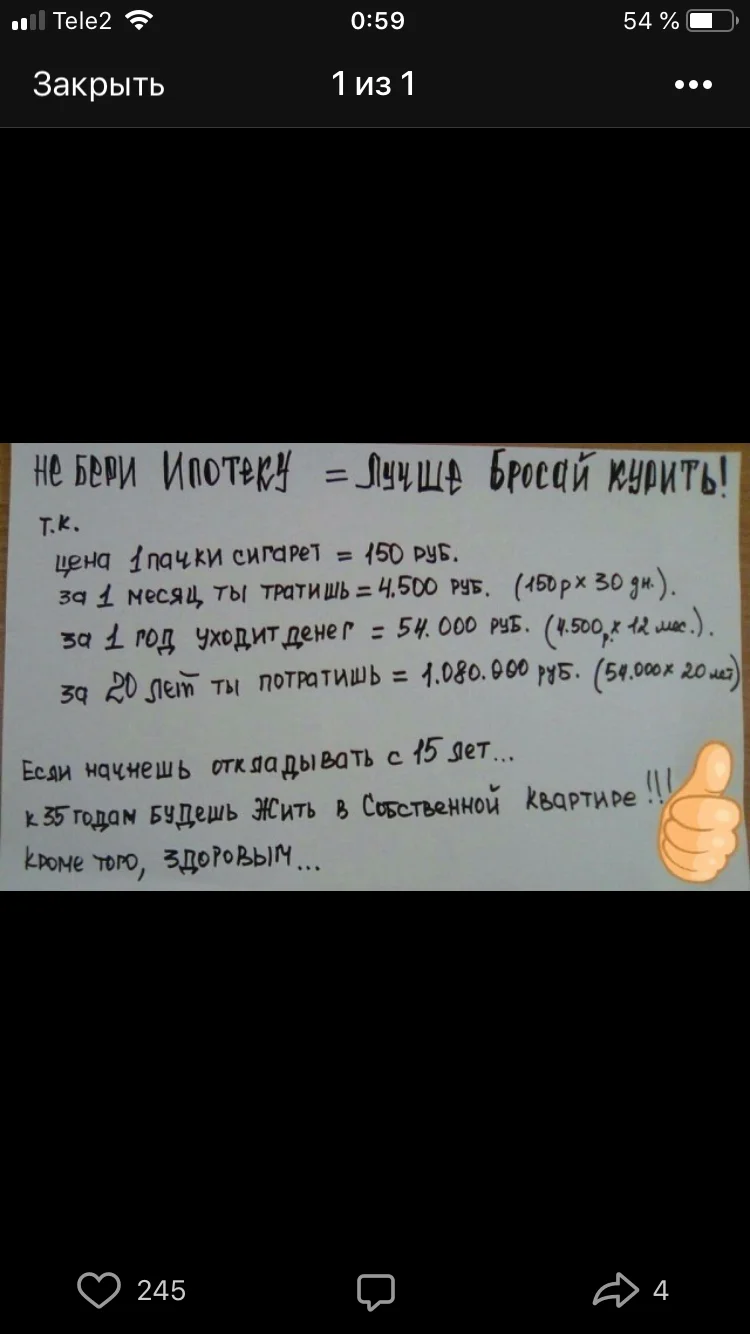 Tele2 0:59 54 %
Закрыть 1 из 1
Не бери ипотеку = лучше бросай курить!
т.к.
цена 1 пачки сигарет = 150 руб.
за 1 месяц ты тратишь = 4.500 руб. (150р x 30 дн.).
за 1 год уходит денег = 54.000 руб. (4.500р. x 12 мес.).
за 20 лет ты потратишь = 1.080.000 руб. (54.000 x 20 лет)
Если начнешь откладывать с 15 лет...
к 35 годам будешь жить в собственной квартире!!!
Кроме того, здоровым...
245 4